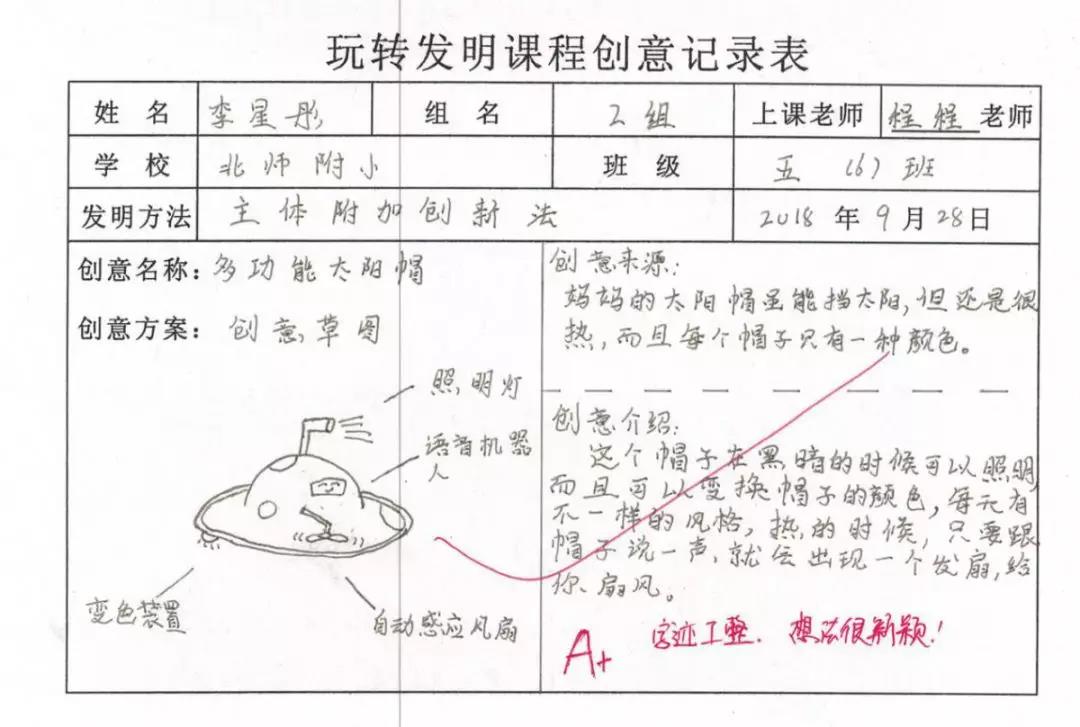 玩转发明课程创意记录表
姓 名 李星彤 组 名 2组 上课老师 程程 老师
学 校 北师附小 班 级 五(6)班
发明方法 主体附加创新法 2018年9月28日
创意名称:多功能太阳帽
创意方案:创意草图
照明灯
语音机器
人
变色装置
自动感应风扇
创意来源:
妈妈的太阳帽虽能挡太阳,但还是很
热,而且每个帽子只有一种颜色。
创意介绍:
这个帽子在黑暗的时候可以照明
而且可以变换帽子的颜色,每天有
不一样的风格,热的时候,只要跟
帽子说一声,就会出现一个发扇,给
你扇风。
A+ 字迹工整.想法很新颖!